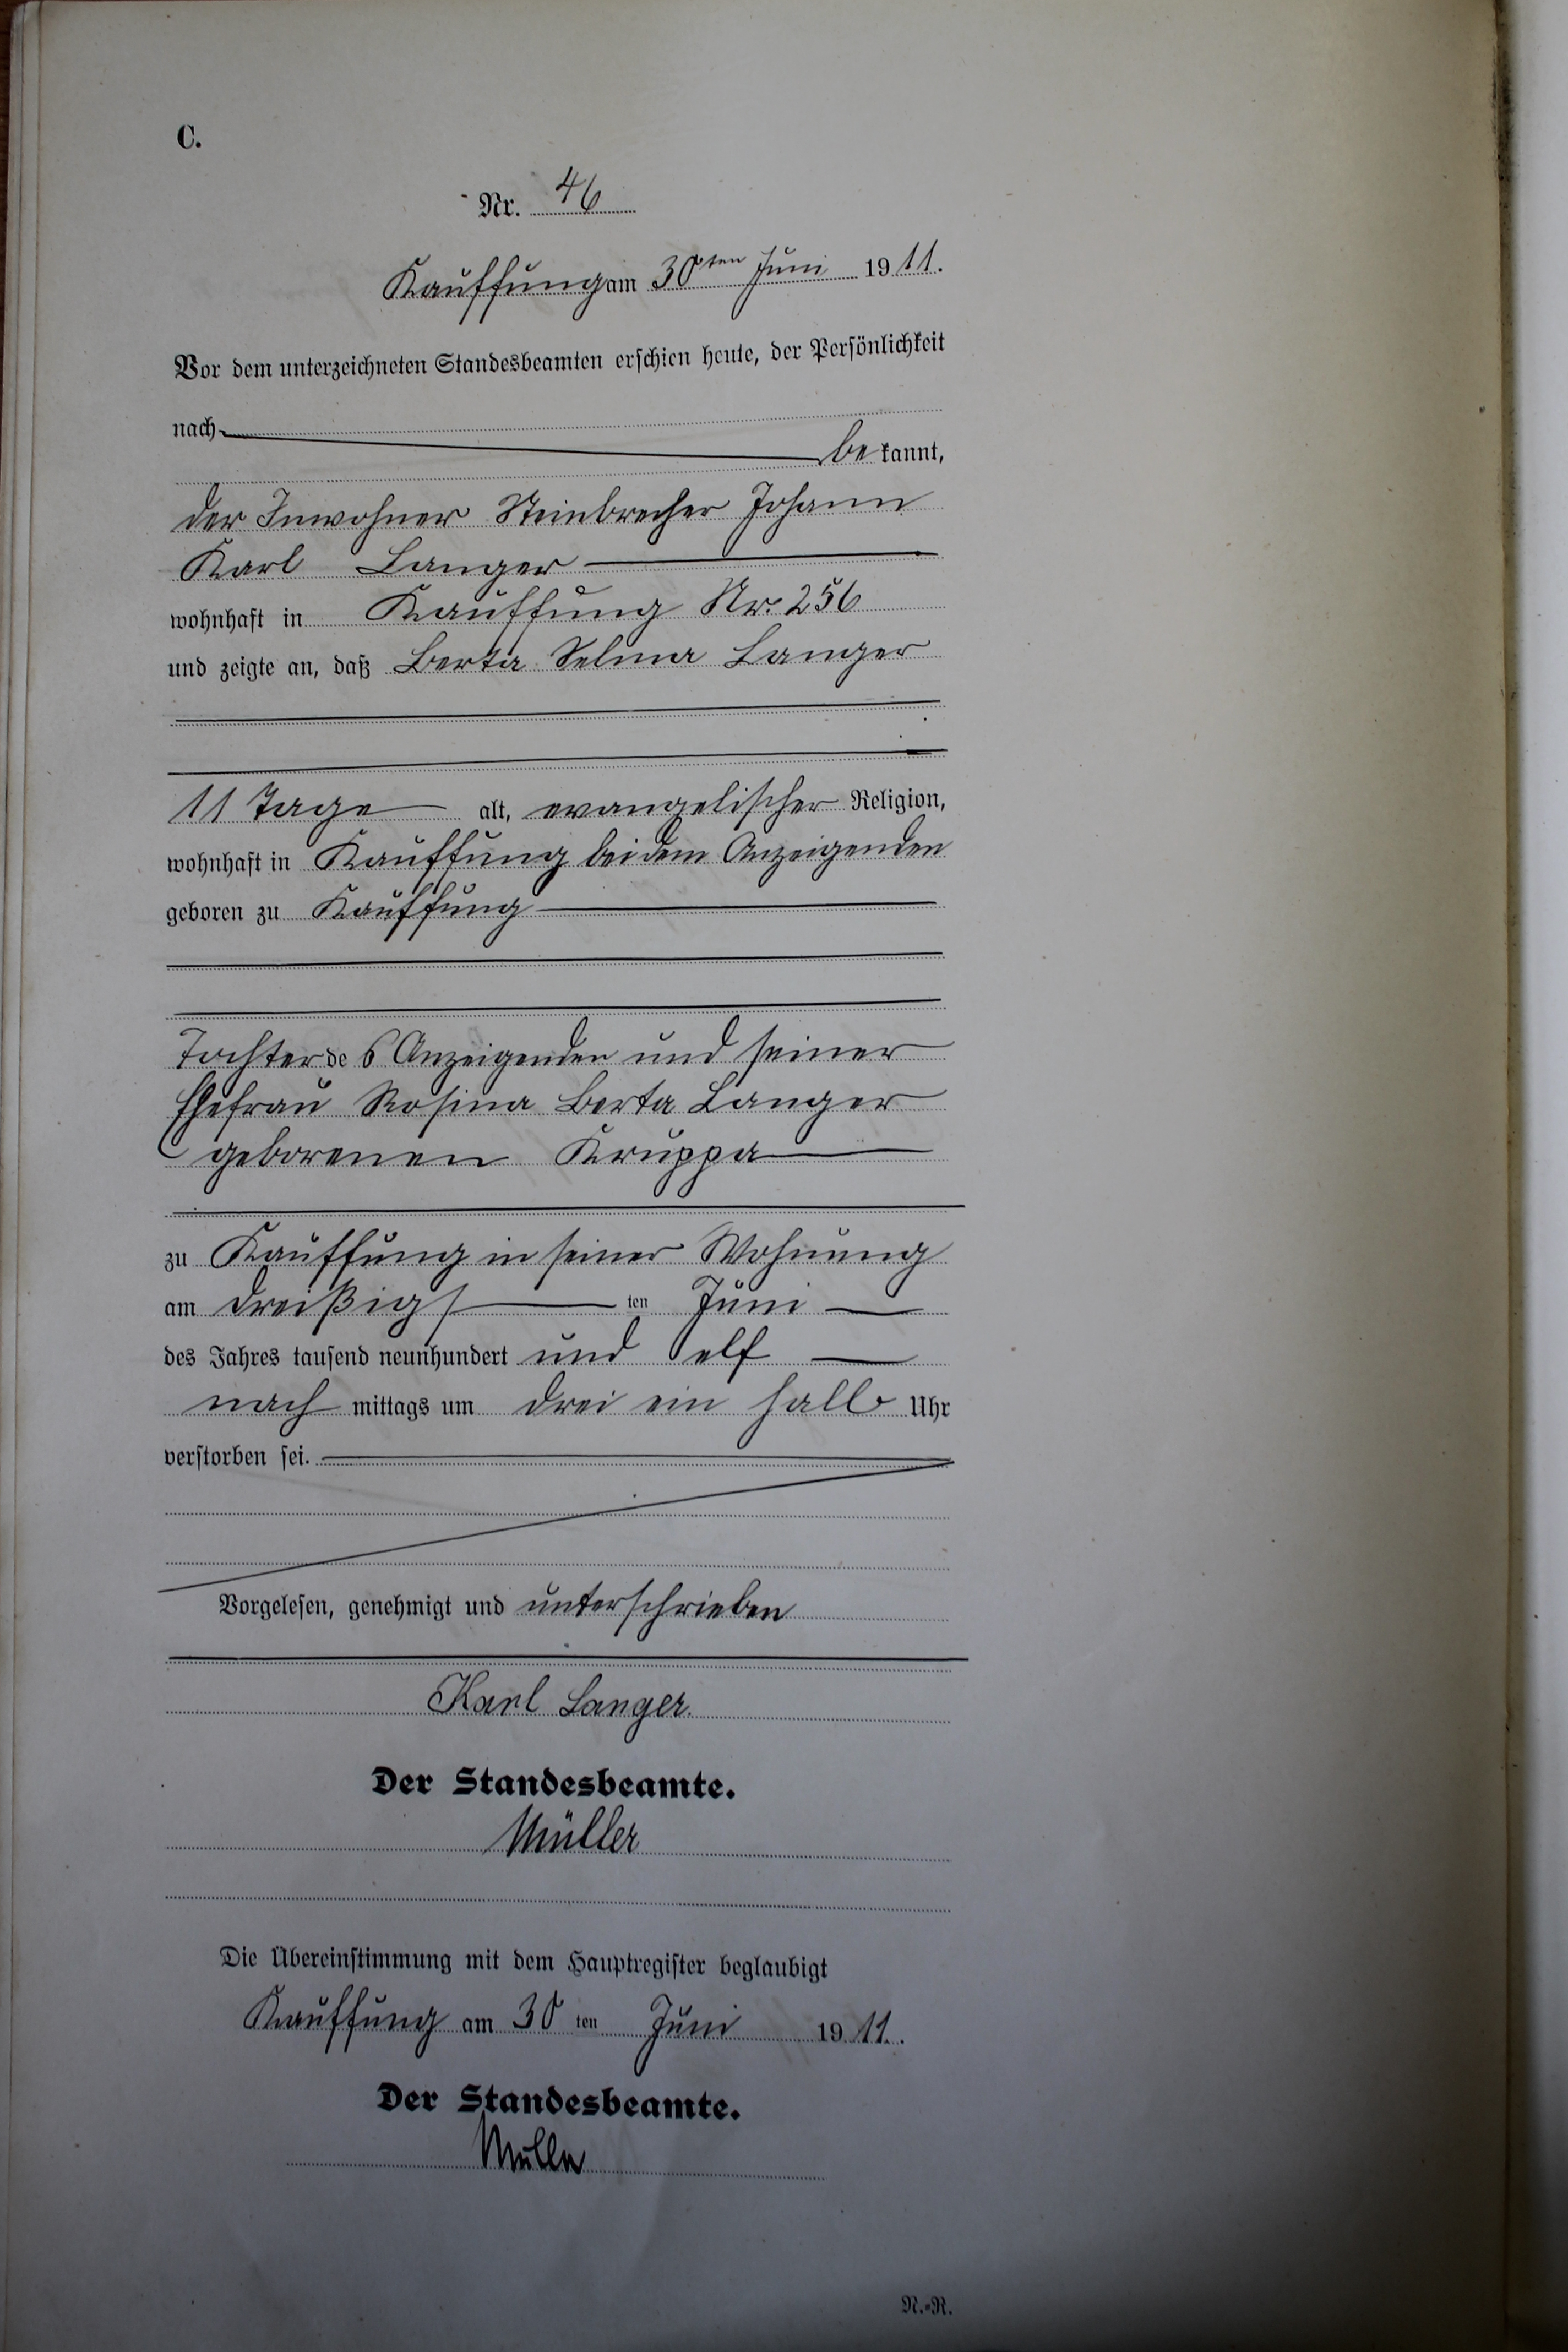 C.
Nr. 46
Kauffung am 30ten Juni 1911.
Vor dem unterzeichneten Standesbeamten erschien heute, der Persönlichkeit
nach
bekannt,
der Inwohner Steinbrecher Johann
Karl Langer
wohnhaft in Kauffung Nr. 256
und zeigte an, daß Berta Selma Langer
11 Tage alt, evangelischer Religion,
wohnhaft in Kauffung bei dem Anzeigenden
geboren zu Kauffung
Tochter des Anzeigenden und seiner
Ehefrau Rosina Berta Langer
geborenen Kruppa
zu Kauffung in seiner Wohnung
am dreißigsten Juni
des Jahres tausend neunhundert und elf
nachmittags um drei ein halb Uhr
verstorben sei.
Vorgelesen, genehmigt und unterschrieben
Karl Langer.
Der Standesbeamte.
Müller
Die Übereinstimmung mit dem Hauptregister beglaubigt
Kauffung am 30ten Juni 1911.
Der Standesbeamte.
Müller
N.-R.